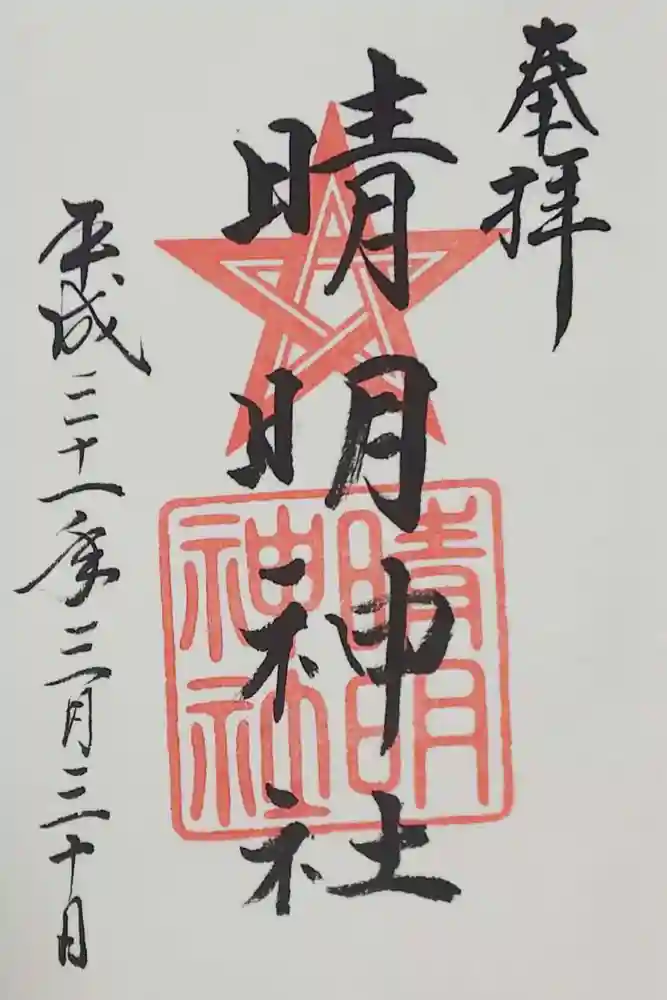 奉拝
晴明神社
晴明
神社
平成二十一年三月三十日